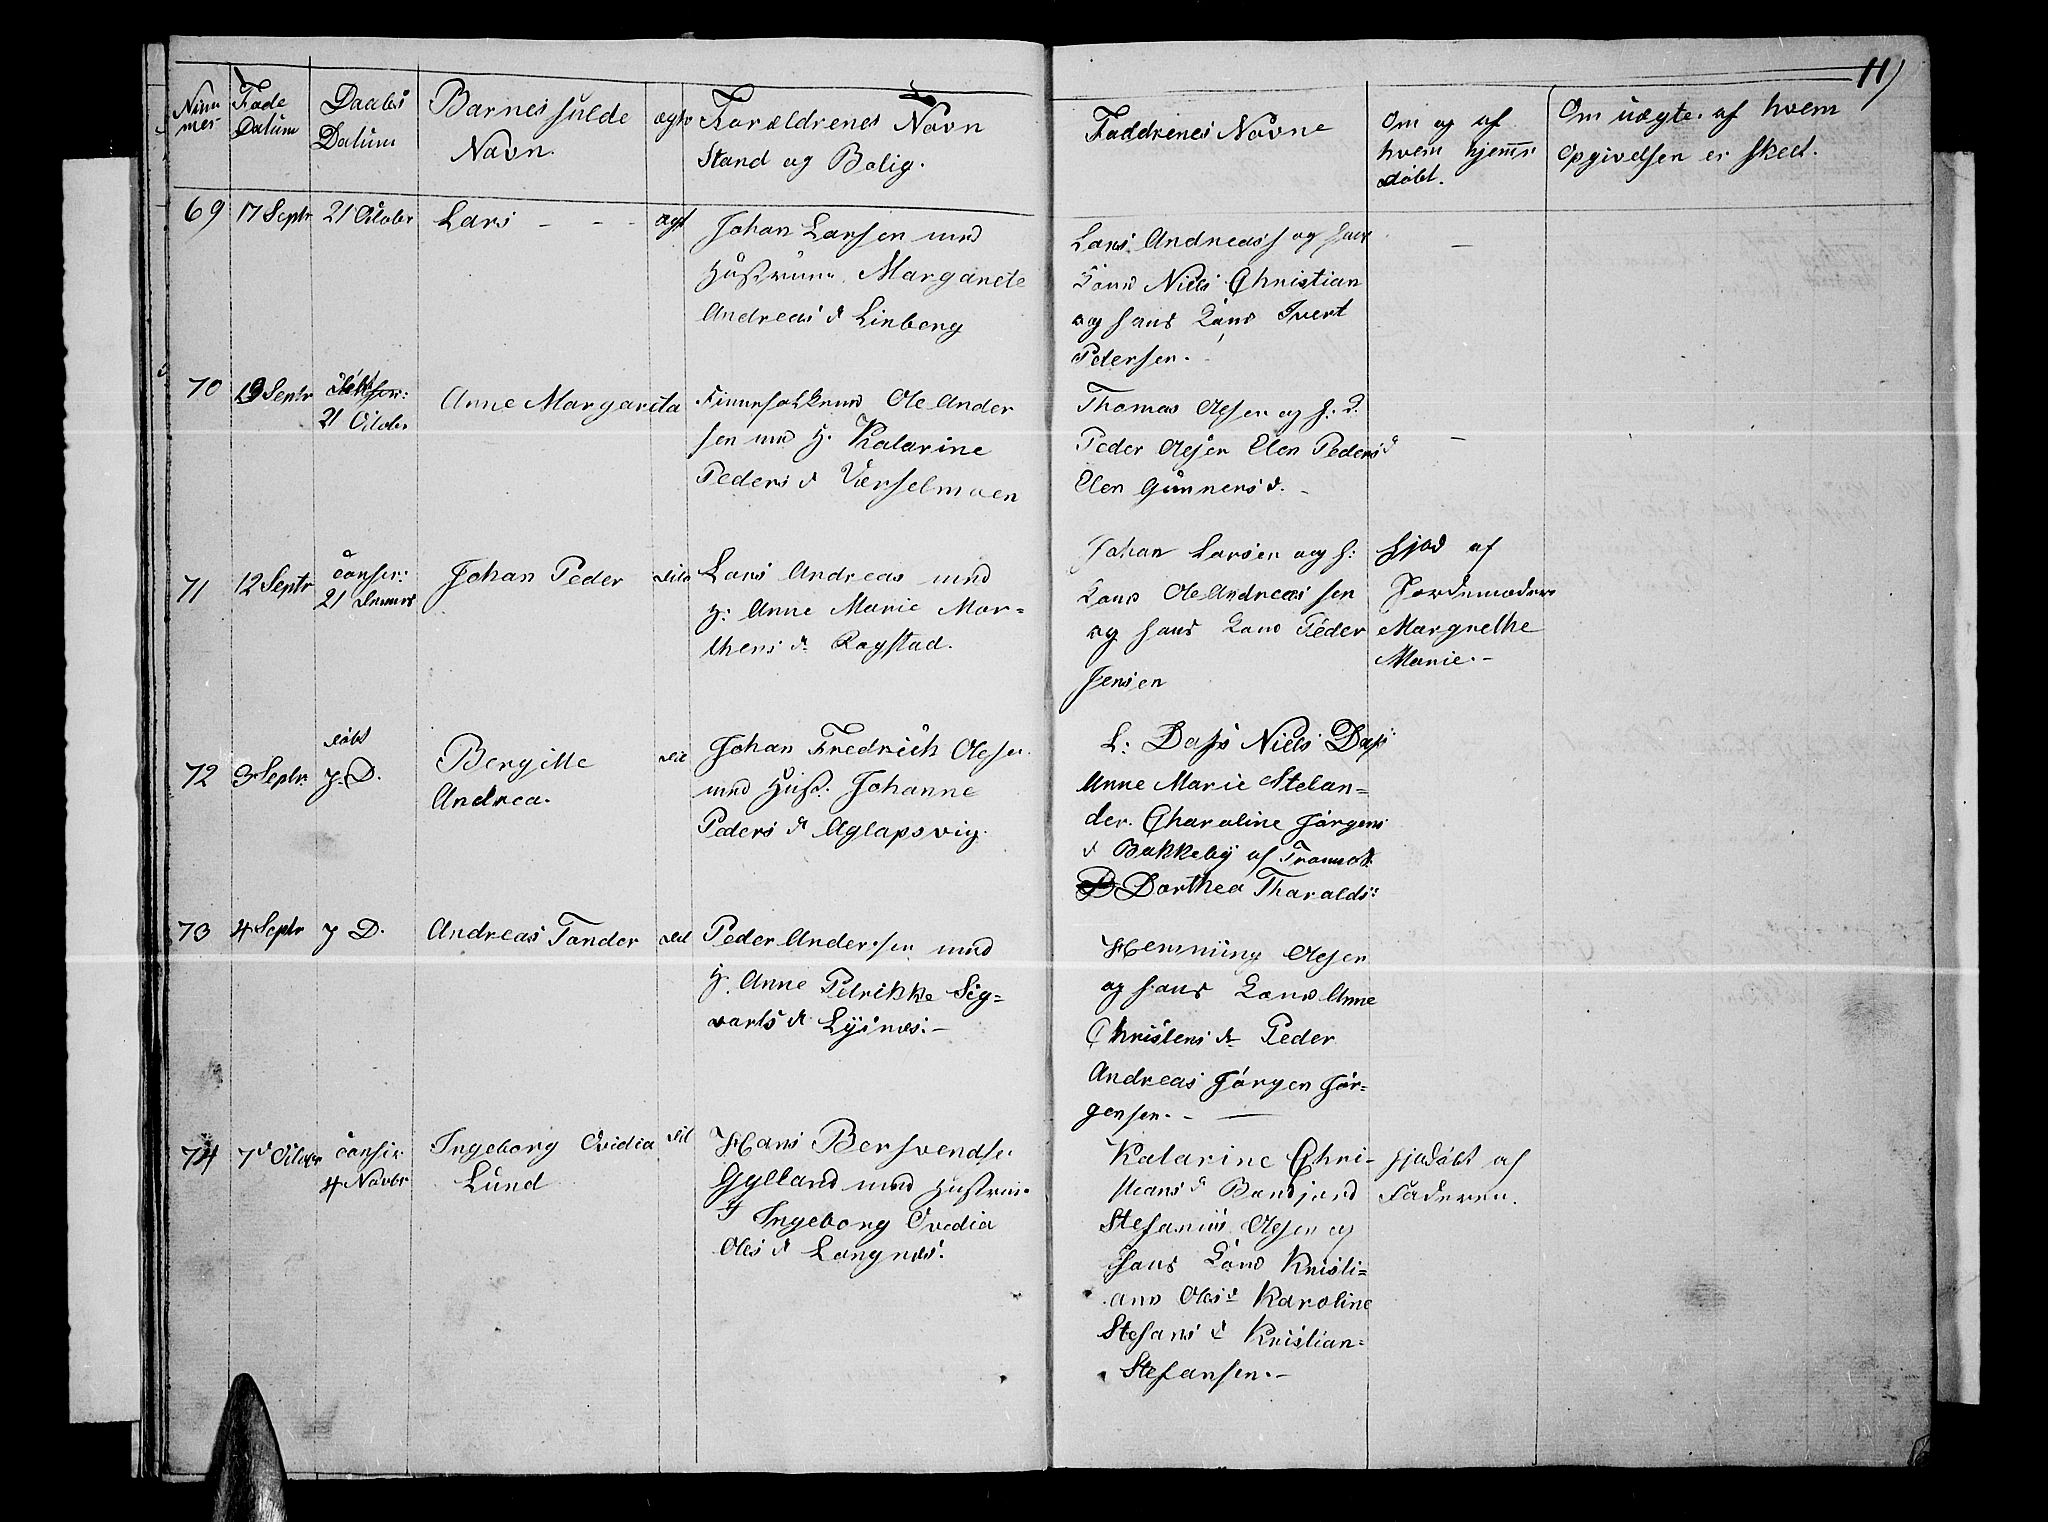 11)
Num
mer
Føde
Datum
Daabs
Datum
Barnes fulde
Navn.
ægte
Forældrenes Navn
Stand og Bolig.
Faddrenes Navne
Om og af
hvem hjemme
døbt.
Om uægte. af hvem
Opgivelsen er skeet.
69
17 Septr
21 Octobr
Lars - - -
ægt
Johan Larsen med
Hustrue. Margarete
Andreas d Linberg
Lars Andreass og hans
Kone Niels Christian
og hans Kone Ivert
Pedersen.
-
70
19 Septr
døbt
21 Octobr
Anne Margarita
Ole Ander
sen med H. Katarine
Peders d Værselmoen
Thomas Olesen og h. K.
Peder Olesen Elen Peders d
Elen Gunners d. -
-
71
12 Septr
confir:
21
Johan Peder
dito
Lars Andreas med
H: Anne Marie Mor=
thens dr Rogstad.
Johan Larsen og h:
Kone Ole Andreassen
og hans Kone Peder
Jensen
hjdøb af
Jordemoder
Margrethe
Marie. -
72
3 Septr
døbt
7 D.
Bergitte
Andrea.
dit
Johan Fredrich Olesen
med Hust. Johanne
Peders dr Aglapsvig.
L: Dass Niels Dass
Anne Marie Stelan=
der. Charoline Jørgens
d Bakkeby af Tromsø
Dorthea Tharalds:
73
4 Septr
7 D.
Andreas Tander
dit
Peder Andersen med
H. Anne Petrikke Sig=
varts dr Lysnes. -
Hemming Olesen
og hans Kone Anne
Christens dr Peder
Andreas Jørgen Jør=
gensen. -
74
7d Octobr
confir
4 Novbr
Ingeborg Ovidia
Lund
dit
Hans Bersvendsen
Gylland med Hustrue
Ingeborg Ovedia
Oles d Langnes.
Katarine Chri-
stians d
Stefanus Olesen og
hans Kone Kristi=
ane Oles d Karoline
Stefans d Kristian=
Stefansen. -
hjdøbt af
Faderen.